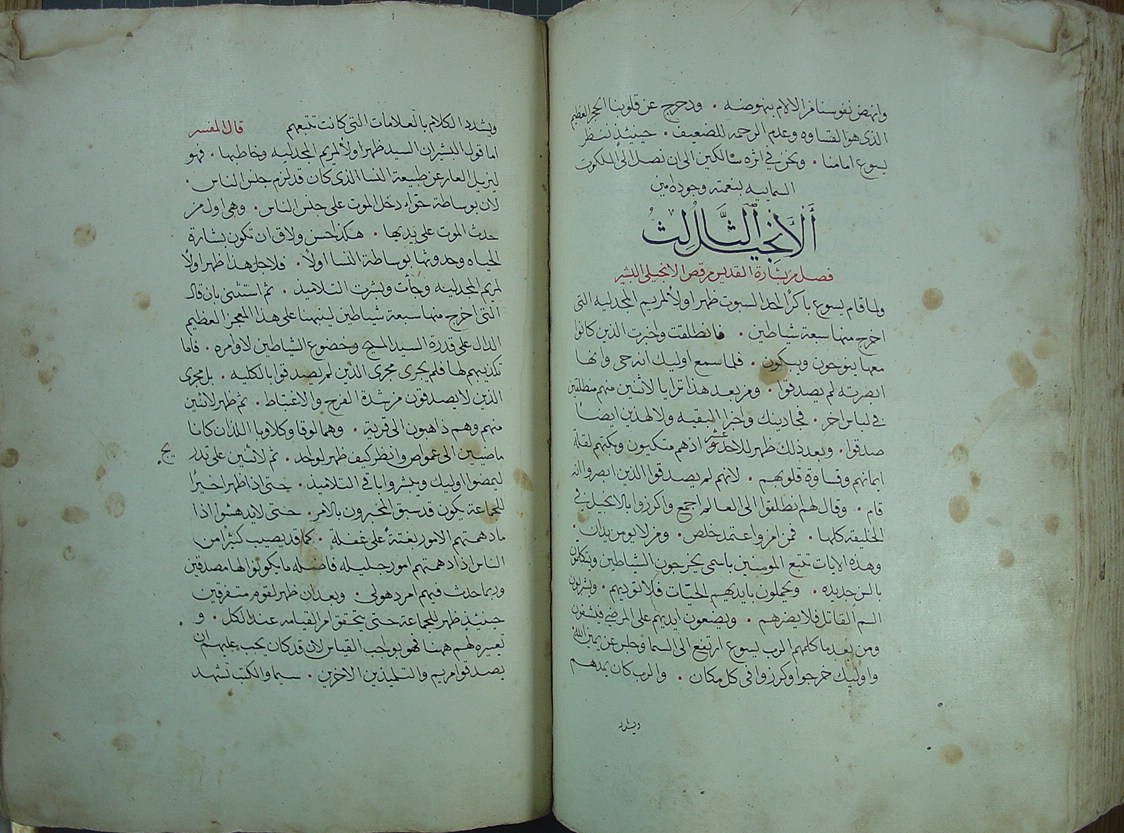 وانهض نفوسنا من الالام بنهوضه . ودحرج عن قلوبنا الحجر العظيم
الذي هو القساوه وعدم الرحمه للضعيف . حينئذ ننظر
يسوع امامنا . ونحن في اثره سالكين الى ان نصل الى الملكوت
السمائيه بنعمته وجوده امين
الانجيل الثالث
فصل من بشارة القديس مرقص الانجيلي البشير
ولما قام يسوع باكرًا لاحد السبوت ظهر اولًا لمريم المجدليه التي
اخرج منها سبعة شياطين . فانطلقت واخبرت الذين كانوا
معها ينوحون ويبكون . فلما سمع اوليك انه حي وانها
ابصرته لم يصدقوا . ومن بعد هذا ترايا لاثنين منهم منطلقين
في لباس اخر . فجا ذينك واخبرا البقيه ولا لهذين ايضًا
صدقوا . وبعد ذلك ظهر للاحد عشر اذ هم متكيون وبكتهم لقلة
ايمانهم وقساوة قلوبهم . لانهم لم يصدقوا الذين ابصروا انه
قام . وقال لهم انطلقوا الى العالم اجمع واكرزوا بالانجيل في
الخليقه كلها . فمن امن واعتمد خلص . ومن لا يومن يدان .
وهذه الايات تتبع المومنين باسمي يخرجون الشياطين ويتكلمون
بالسن جديده . ويحملون بايديهم الحيّات فلا توذيهم . ويشربون
السم القاتل فلا يضرهم . ويضعون ايديهم على المرضى فيشفون
ومن بعد ما كلمهم الرب يسوع ارتفع الى السما وجلس عن يمين الله
واوليك خرجوا وكرزوا في كل مكان . والرب كان يمدهم
ويشدد
ويشدد الكلام بالعلامات التي كانت تتبعهم قال المفسر
اما قول البشير ان السيد ظهر اولًا لمريم المجدليه وخاطبها . فهو
ليزيل العار عن طبيعة النسا الذي كان قد لزم جنس الناس .
لان بوساطة حوّاء دخل الموت على جنس الناس . وهي اول من
حدث الموت على يديها . هكذا حسن ولاق ان تكون بشارة
الحياه وحدوثها بوساطة النسا اولًا . فلاجل هذا ظهر اولًا
لمريم المجدليه وجأت وبشرت التلاميذ . ثم استثنى بان قال
التي اخرج منها سبعة شياطين لينبهنا على هذا المعجز العظيم
الدال على قدرة السيد المسيح وخضوع الشياطين لاوامره . فاما
تكذيبهم لها فلم يجرى مجرى الذين لم يصدقوا بالكليه . بل مجرى
الذين لا يصدقون من شدة الفرح والاغتباط . ثم ظهر لاثنين
منهم وهم ذاهبون الى قرية . وهما لوقا وكلاوبا اللذان كانا
ماضيين الى عمواص وانظر كيف ظهر لوحد . ثم لاثنين على تدر
يج
ليمضوا اوليك ويبشروا باقي التلاميذ . حتى اذا ظهر اخيرًا
للجماعة يكون قد سبق المخبرون بالامر . حتى لا يندهشوا اذا
ما دهمتهم الامور بغتة على غفلة . كما قد يصيب كثيرًا من
الناس اذا دهمتهم امور جليله فاضله ما يكونوا لها مصدقين
وربما حدث فيهم امر دهولي . وبعد ان ظهر لقوم متفرقين
حينئذ ظهر للجماعة حتى يتحقق امر القيامه عند الكل . و
تعييره لهم ههنا فهو بواجب القياس لان قد كان يجب عليهم ان
يصدقوا مريم والتلميذين الاخرين . سيما والكتب تشهد